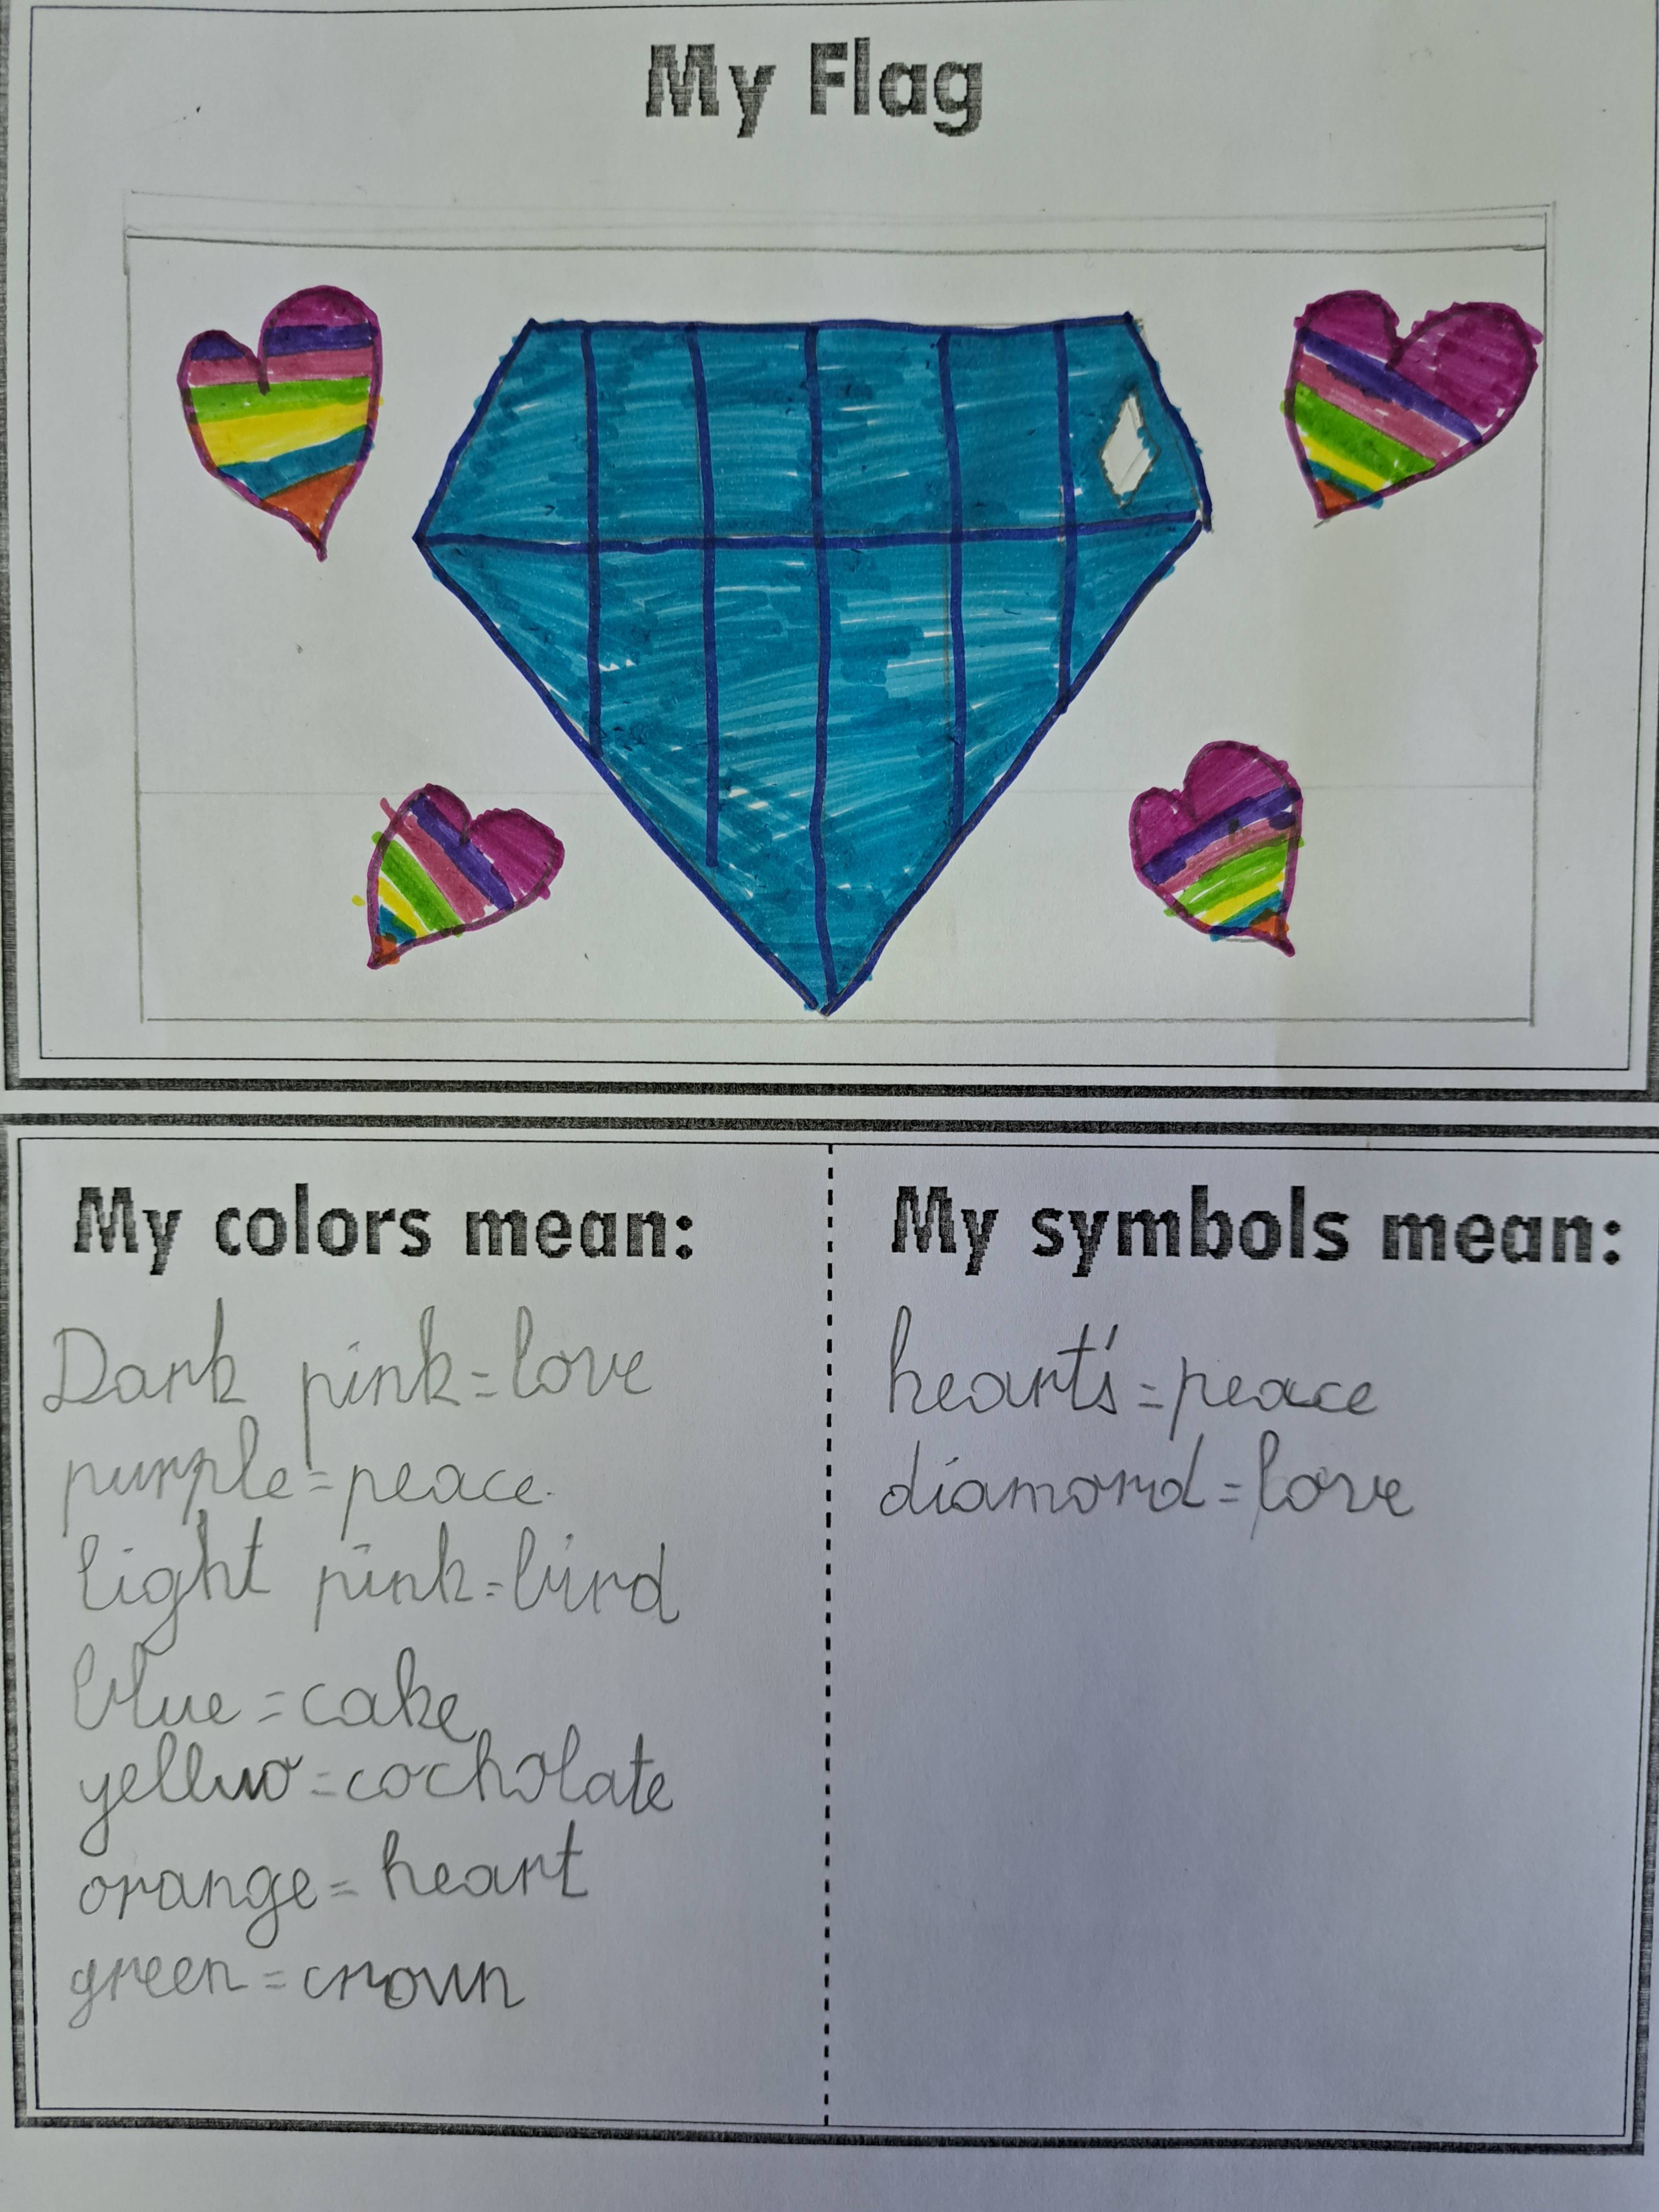 My Flag
My colors mean:
Dark pink=love
purple=peace.
light pink=bird
blue=cake
yelluw=cocholate
orange=heart
green=crown
My symbols mean:
heart's=peace
diamond=love